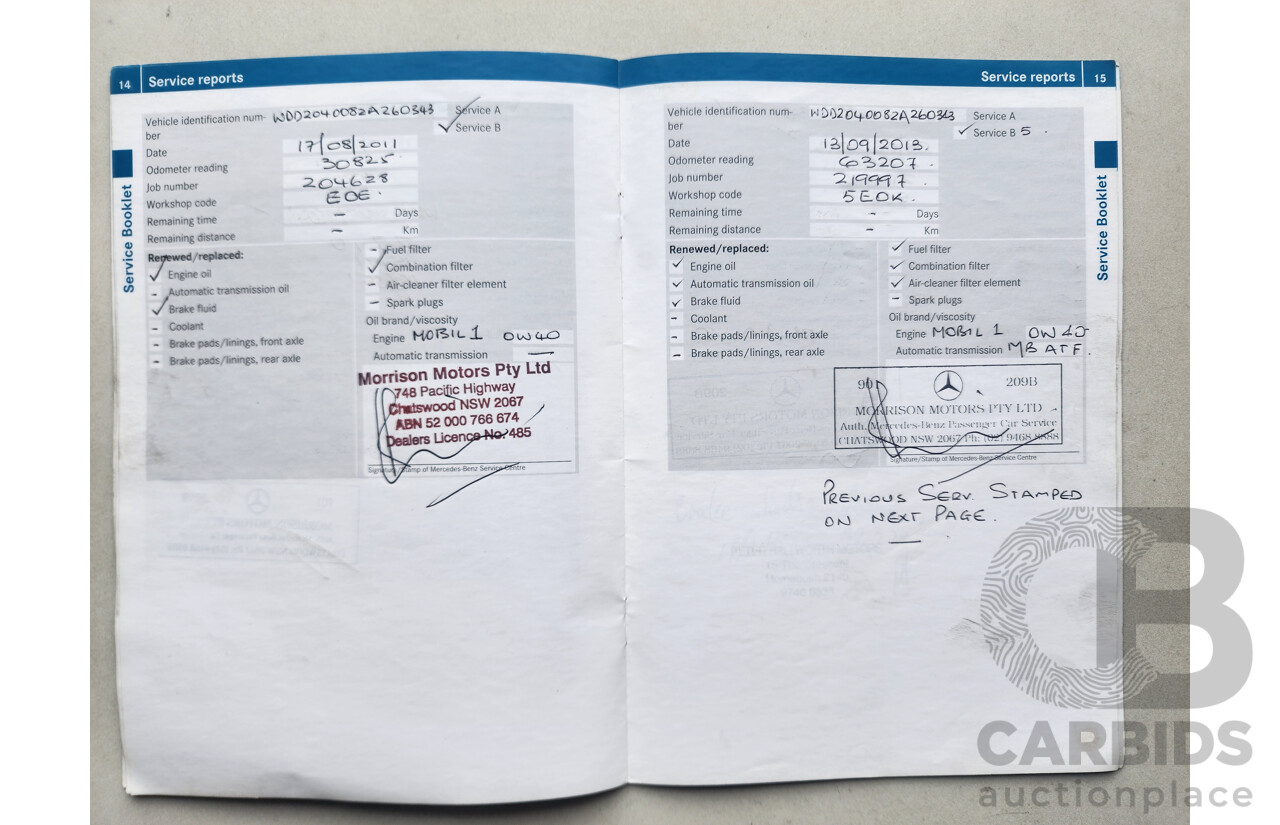 14 Service reports
Vehicle identification num- WDD2040082A260343 Service A
ber ✓ Service B
Date 17/08/2011
Odometer reading 30825
Job number 204628
Workshop code EOE.
Remaining time - Days
Remaining distance - Km
Renewed/replaced:
✓ Engine oil
- Automatic transmission oil
✓ Brake fluid
- Coolant
- Brake pads/linings, front axle
- Brake pads/linings, rear axle
- Fuel filter
✓ Combination filter
- Air-cleaner filter element
- Spark plugs
Oil brand/viscosity
Engine MOBIL 1 0W40
Automatic transmission —
Morrison Motors Pty Ltd
748 Pacific Highway
Chatswood NSW 2067
ABN 52 000 766 674
Dealers Licence No. 485
Signature/Stamp of Mercedes-Benz Service Centre
Service Booklet
Service reports 15
Vehicle identification num- WDD2040082A260343 Service A
ber ✓ Service B 5
Date 13/09/2013.
Odometer reading 63207.
Job number 219997.
Workshop code 5EOK.
Remaining time - Days
Remaining distance - Km
Renewed/replaced:
✓ Engine oil
✓ Automatic transmission oil
✓ Brake fluid
- Coolant
- Brake pads/linings, front axle
- Brake pads/linings, rear axle
✓ Fuel filter
✓ Combination filter
✓ Air-cleaner filter element
- Spark plugs
Oil brand/viscosity
Engine MOBIL 1 0W40
Automatic transmission MB ATF.
209B
MORRISON MOTORS PTY LTD
Auth. Mercedes-Benz Passenger Car Service
CHATSWOOD NSW 2067 Ph: (02) 9468 8888
Signature/Stamp of Mercedes-Benz Service Centre
PREVIOUS SERV. STAMPED
ON NEXT PAGE.
Service Booklet
CARBIDS
auctionplace